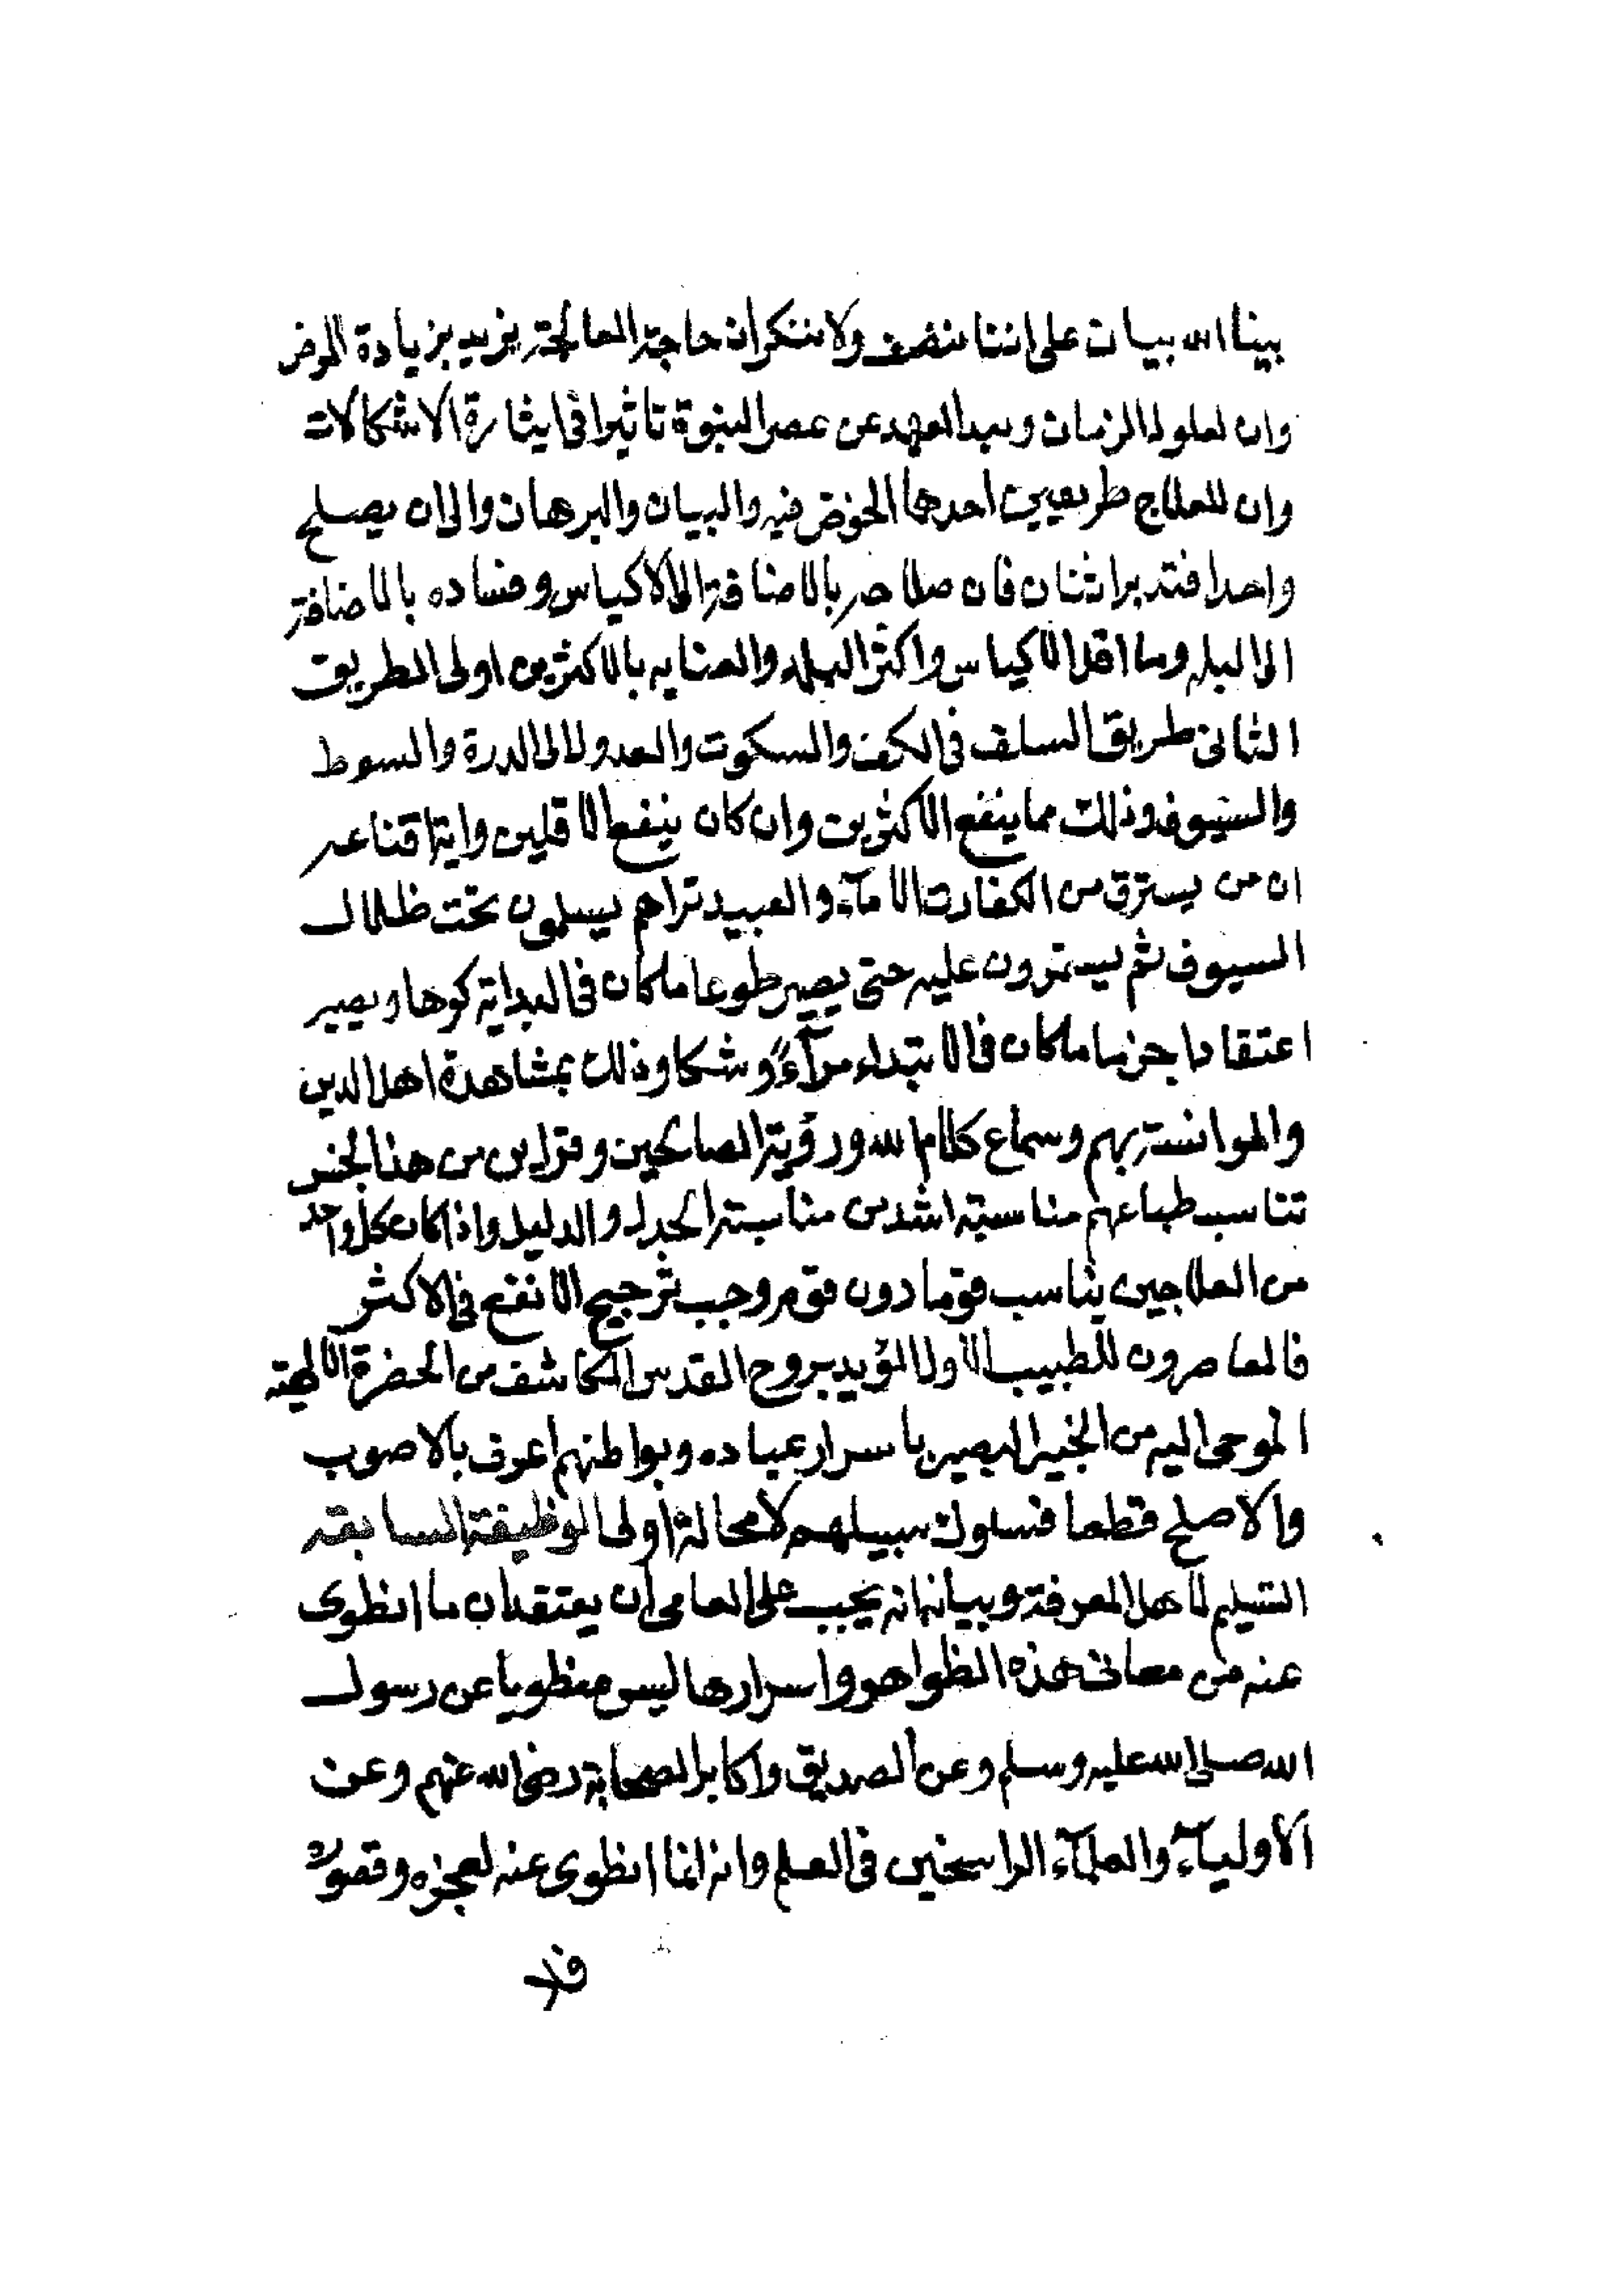 بينا الله بيان على اننا ننصف ولا ننكر ان حاجة المعالجة يزيد بزيادة المرض
وان لطول الزمان وبعد العهد عن عصر النبوة تاثيرا في ايثارة الاشكالات
وان للعلاج طريقين احدها الخوض فيه والبيان والبرهان والى ان يصلح
واحدا فتد برا اثنان فان صلاحه بالاضافة الى الاكياس وفساده بالاضافة
الى البله وما اقل الاكياس واكثر البله والعنايه بالاكثرين اولى الطريق
الثانى طريق السلف فى الكف والسكوت والعدول الى الدرة والسوط
والسيوف وذلك مما ينفع الاكثرين وان كان ينفع الاقلين واية اقناعه
ان من يسترق من الكفار من الامآء والعبيد تراهم يسلمون تحت ظلال
السيوف ثم يستمرون عليه حتى يصير طوعا ما كان فى البداية كرها ويصير
اعتقادا جزما ما كان فى الابتداء مرآءً وشكا وذلك بمشاهدة اهل الدين
والموانسة بهم وسماع كلام الله ورؤية الصالحين وقراين من هذا الجنس
تناسب طباعهم مناسبة اشد من مناسبة الجدل والدليل واذا كان كل واحد
من العلاجين يناسب قوما دون قوم وجب ترجيح الانفع فى الاكثر
فالمعاصرون للطبيب الاول المؤيد بروح القدس المكاشف من الحضرة الالهية
الموحى اليه من الخبير البصير باسرار عباده وبواطنهم اعرف بالاصوب
والاصلح قطعا فسلوك سبيلهم لا محالة اولى الوظيفة السابعة
التسليم لاهل المعرفة وبيانه انه يجب على العامى ان يعتقد ان ما انطوى
عنه من معانى هذه الظواهر واسرارها ليس منطويا عن رسول
الله صلى الله عليه وسلم وعن الصديق واكابر الصحابة رضى الله عنهم وعن
الأوليآء والعلمآء الراسخين فى العلم وانه انما انطوى عنه لعجزه وقصور